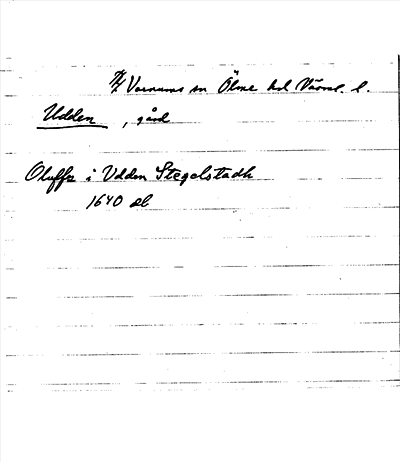 Varnums sn Ölme hd Värml. l.
Udden, gård
Oluffz i Udden Stegelstadh
1640 dl